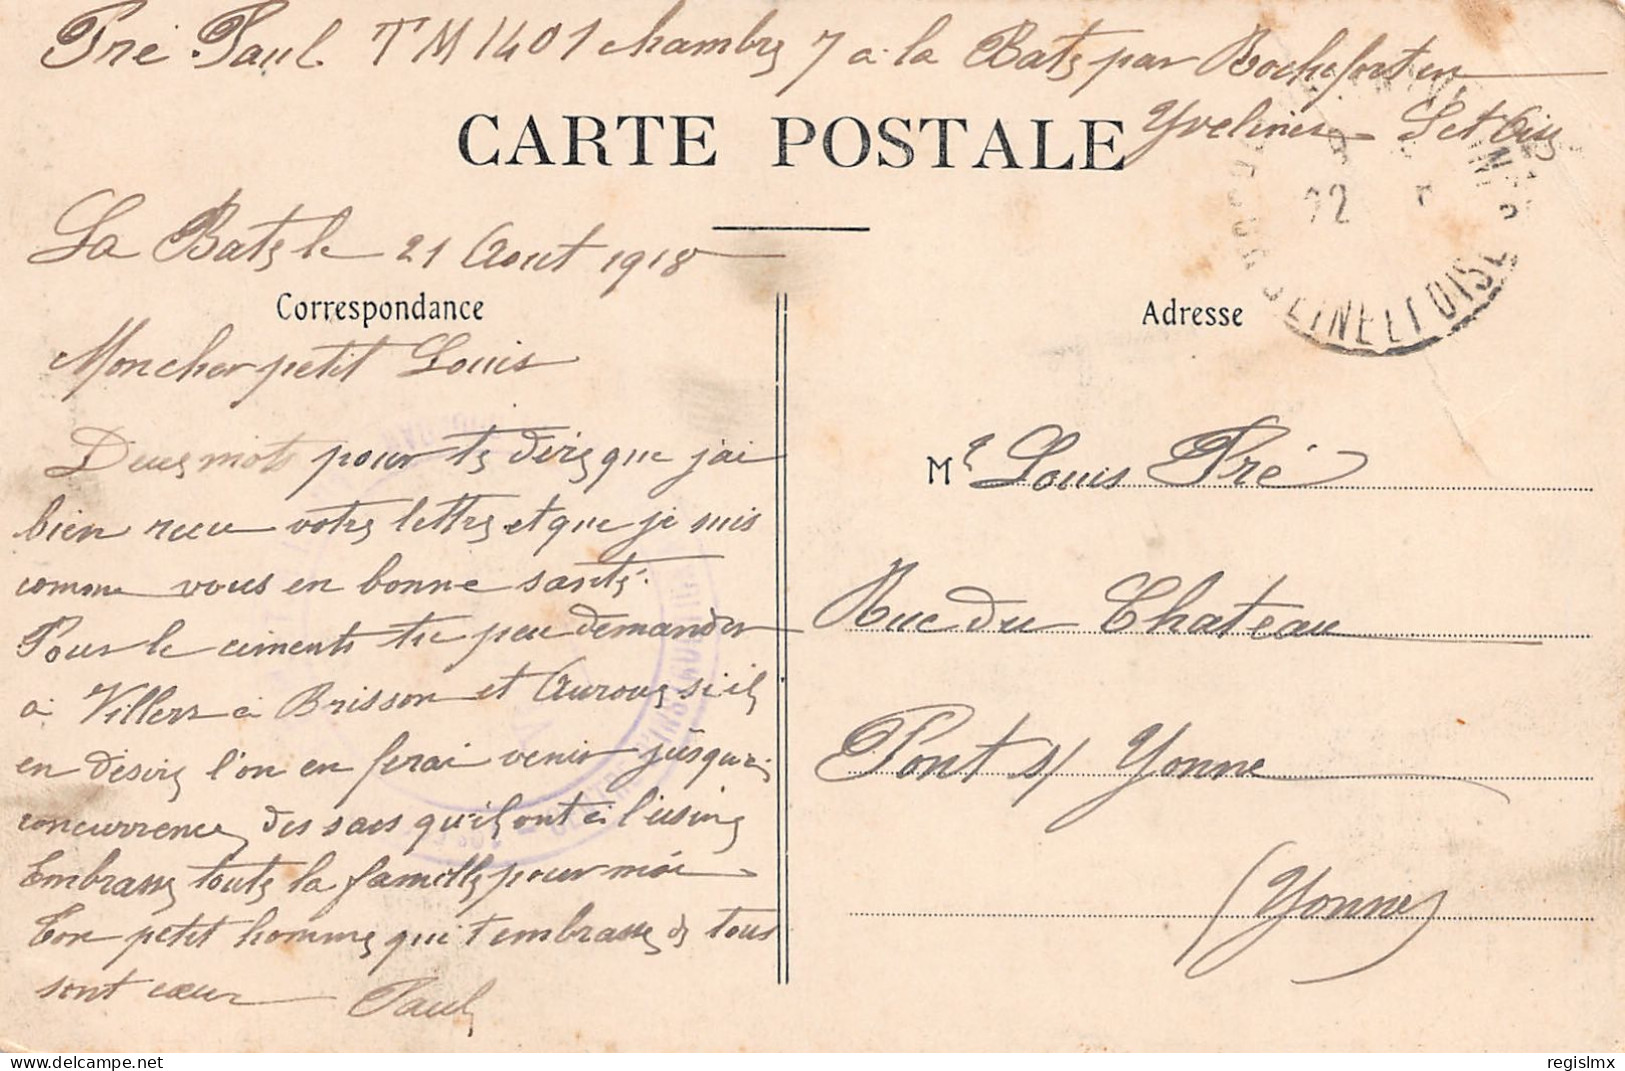 Pré Paul TM 1401 chambre 7 a la Bate par Rochefort en
Yvelines S et Oise
CARTE POSTALE
La Bate le 21 Aout 1918
Correspondance
Adresse
Mon cher petit Louis
Deux mots pour te dire que j'ai
bien recu votre lettre et que je suis
comme vous en bonne santé.
Pour le ciments tu peu demander
a Villers a Brisson et Auroux si il
en désire l'on en ferai venir jusqua
concurrence des sacs qu'il ont à l'usine
Embrasse toute la famille pour moi
Ton petit homme qui t'embrasse de tous
sont cœur Paul
Mr Louis Pré
Rue du Chateau
Pont s/ Yonne
(Yonne)
22
SEINE ET OISE
regislmx